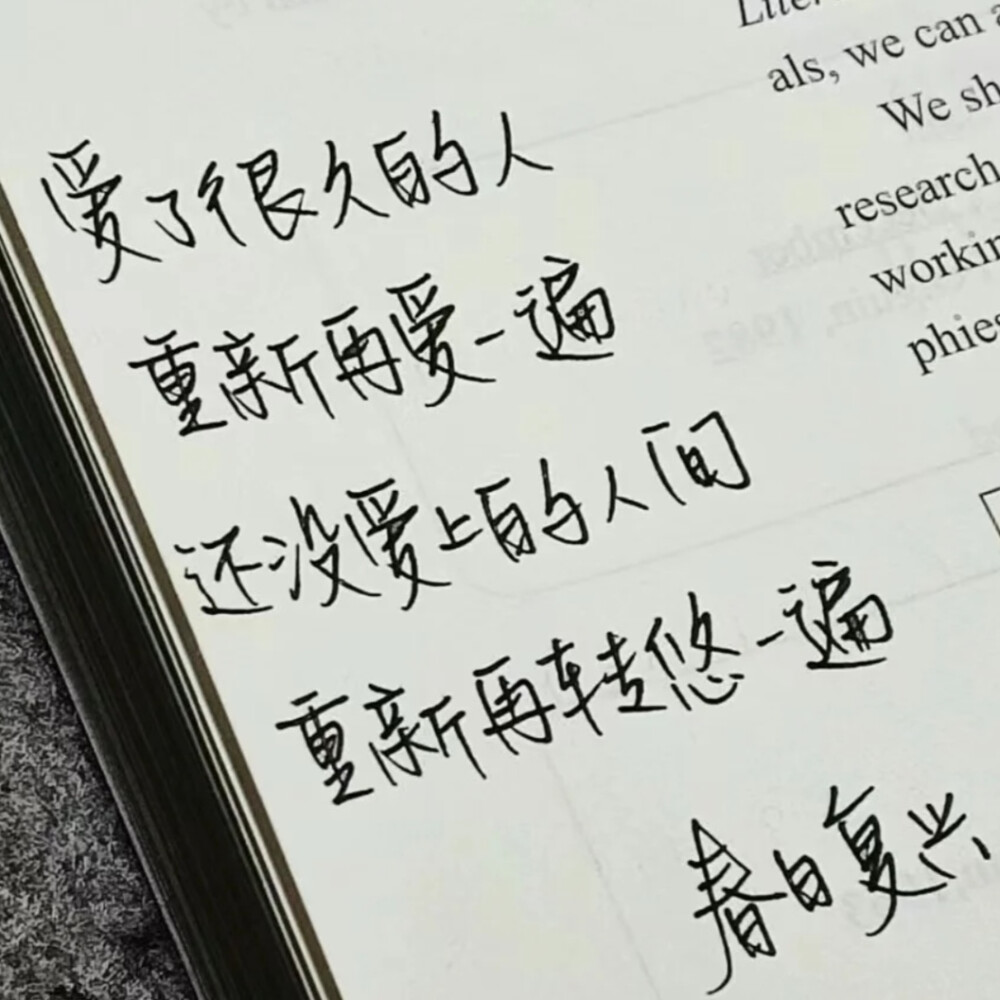 爱了很久的人
重新再爱一遍
还没爱上的人间
重新再转悠一遍
春日复兴
als, we can a
We sh
research
workin
phies